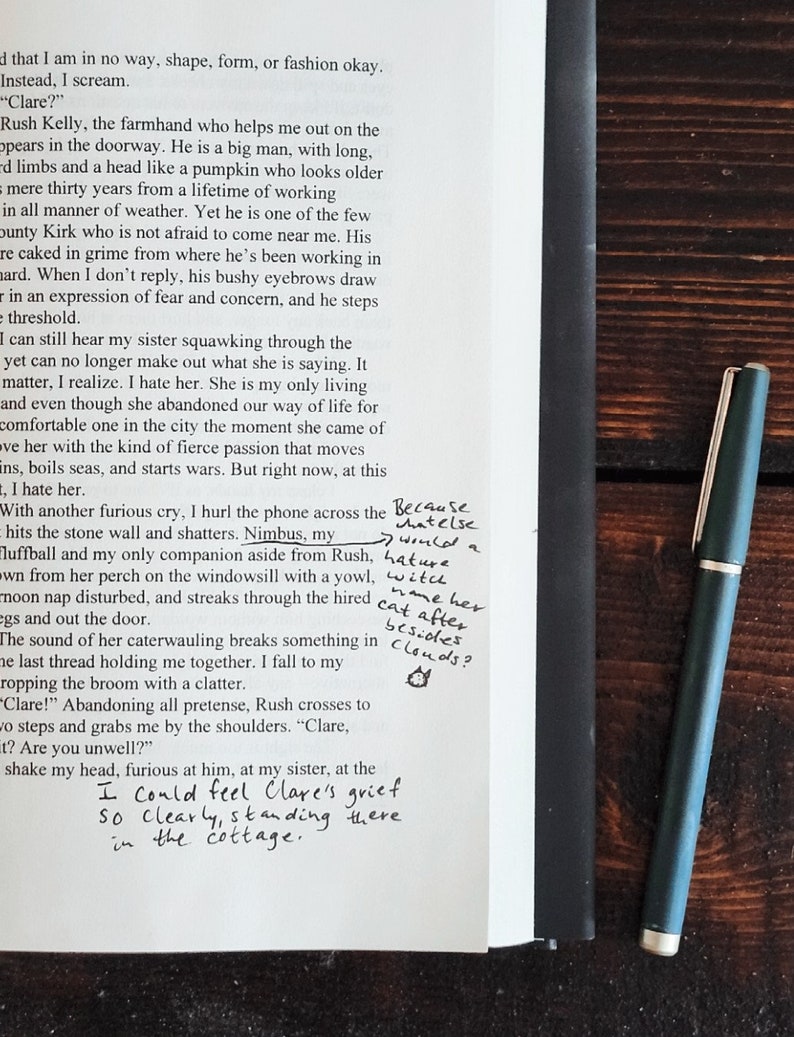 d that I am in no way, shape, form, or fashion okay.
Instead, I scream.
“Clare?”
Rush Kelly, the farmhand who helps me out on the
ppears in the doorway. He is a big man, with long,
rd limbs and a head like a pumpkin who looks older
s mere thirty years from a lifetime of working
in all manner of weather. Yet he is one of the few
ounty Kirk who is not afraid to come near me. His
re caked in grime from where he’s been working in
hard. When I don’t reply, his bushy eyebrows draw
r in an expression of fear and concern, and he steps
e threshold.
I can still hear my sister squawking through the
yet can no longer make out what she is saying. It
matter, I realize. I hate her. She is my only living
and even though she abandoned our way of life for
comfortable one in the city the moment she came of
ove her with the kind of fierce passion that moves
ins, boils seas, and starts wars. But right now, at this
t, I hate her.
With another furious cry, I hurl the phone across the
t hits the stone wall and shatters. Nimbus, my
fluffball and my only companion aside from Rush,
own from her perch on the windowsill with a yowl,
rnoon nap disturbed, and streaks through the hired
egs and out the door.
The sound of her caterwauling breaks something in
he last thread holding me together. I fall to my
ropping the broom with a clatter.
“Clare!” Abandoning all pretense, Rush crosses to
vo steps and grabs me by the shoulders. “Clare,
it? Are you unwell?”
shake my head, furious at him, at my sister, at the
Because
what else
would a
nature
witch
name her
cat after
besides
clouds?
I could feel Clare's grief
so clearly, standing there
in the cottage.